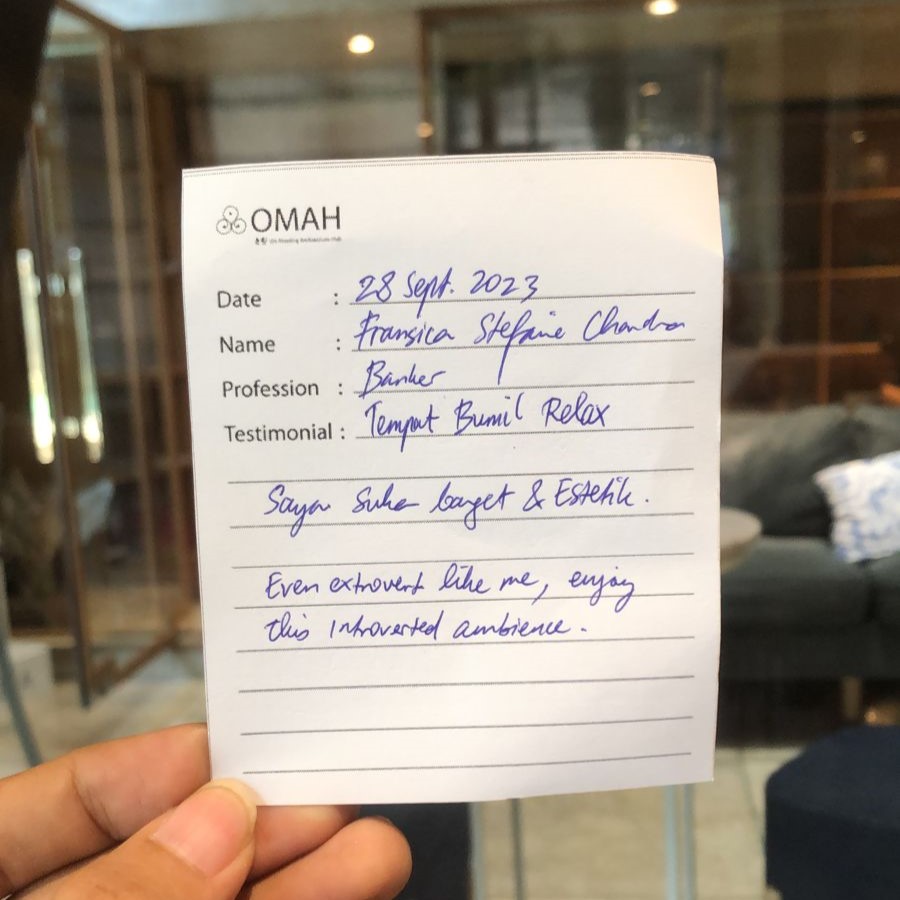 OMAH
Date : 28 Sept. 2023
Name : Fransica Stefanie Chandra
Profession : Banker
Testimonial : Tempat Bumil Relax
Saya suka banget & Estetik.
Even extrovert like me, enjoy
this introverted ambience.